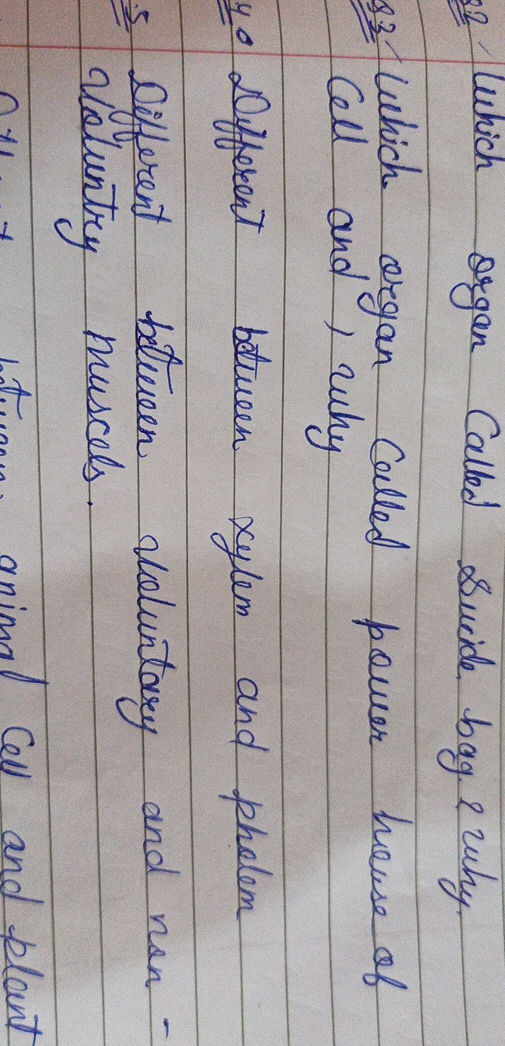 Q2/ Which organ Called Suicide bag & why.
Q3/ Which organ Called power house of
Cell and, why
4. Different between xylem and pholem
.5 Different between voluntary and non -
Voluntry muscels.
between animal Cell and plant